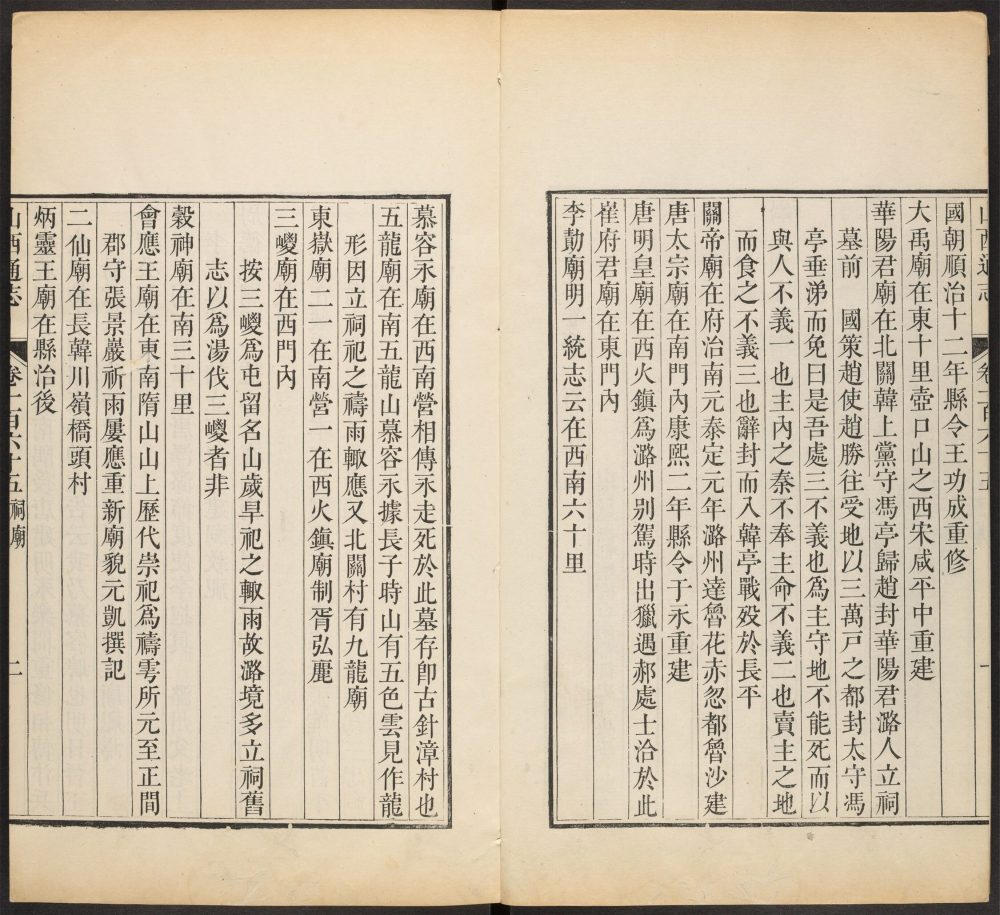 山西通志 卷一百六十五 一
國朝順治十二年縣令王功成重修
大禹廟在東十里壺口山之西宋咸平中重建
華陽君廟在北關韓上黨守馮亭歸趙封華陽君潞人立祠
墓前 國策趙使趙勝往受地以三萬戸之都封太守馮
亭垂涕而免曰是吾處三不義也爲主守地不能死而以
與人不義一也主內之秦不奉主命不義二也賣主之地
而食之不義三也辭封而入韓亭戰殁於長平
關帝廟在府治南元泰定元年潞州達魯花赤忽都魯沙建
唐太宗廟在南門內康熙二年縣令于永重建
唐明皇廟在西火鎮爲潞州别駕時出獵遇郝處士洽於此
崔府君廟在東門內
李勣廟明一統志云在西南六十里
慕容永廟在西南營相傳永走死於此墓存卽古針漳村也
五龍廟在南五龍山慕容永據長子時山有五色雲見作龍
形因立祠祀之禱雨輒應又北關村有九龍廟
東嶽廟二一在南營一在西火鎮廟制胥弘麗
三嵕廟在西門內
按三嵕爲屯留名山歲旱祀之輒雨故潞境多立祠舊
志以爲湯伐三嵕者非
穀神廟在南三十里
會應王廟在東南隋山山上歷代崇祀爲禱雩所元至正間
郡守張景嚴祈雨屢應重新廟貌元凱撰記
二仙廟在長韓川嶺橋頭村
炳靈王廟在縣治後
山西通志 卷一百六十五 祠廟 二